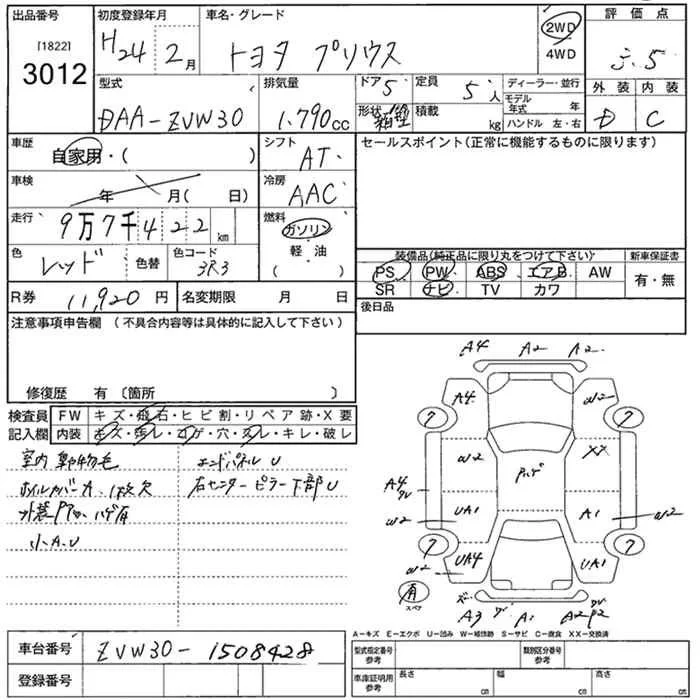 出品番号
[1822]
3012
初度登録年月
H24年 2月
車名・グレード
トヨタ プリウス
2WD
4WD
評価点
外装 内装
D C
型式
DAA-ZVW30
排気量
1.790cc
ドア 5
形状 箱型
定員 5人
積載 kg
ディーラー・並行
モデル年式 年
ハンドル 左・右
車歴
自家用・( )
車検
年 月( 日)
走行
9万7千422km
色
レッド
色替
色コード
3R3
シフト
AT
冷房
AAC
燃料
ガソリン
軽・油
( )
セールスポイント(正常に機能するものに限ります)
装備品(純正品に限り丸をつけて下さい)
PS PW ABS エアB AW
SR ナビ TV カワ
新車保証書
有・無
R券 11,920円
名変期限 月 日
後日品
注意事項申告欄 (不具合内容等は具体的に記入して下さい)
修復歴 有 〔箇所 〕
検査員
記入欄
FW キズ・飛石・ヒビ割・リペア跡・X要
内装 キズ・汚レ・コゲ・穴・スレ・キレ・破レ
室内動物毛
ホイルカバーA、1枚欠
小A.U
エンドパネルU
右センターピラー下部U
A4 A2 A2
A4 W2
?
?
W2 XX
A4
W2 UA1 A1 W2
?
?
W2 UA4 UA1
有
スペア
A3 A1 A2
A-キズ E-エクボ U-凹み W-補修跡 S-サビ C-腐食 XX-交換済
車台番号 ZVW30-1508428
登録番号
型式指定番号
参考
類別区分番号
参考
車庫証明用
参考
長さ cm
幅 cm
高さ cm